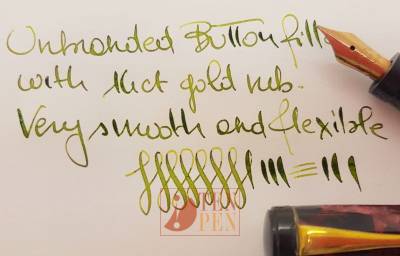 Unbranded Button fill
with 14ct gold nib.
Very smooth and flexible
TEN
PEN